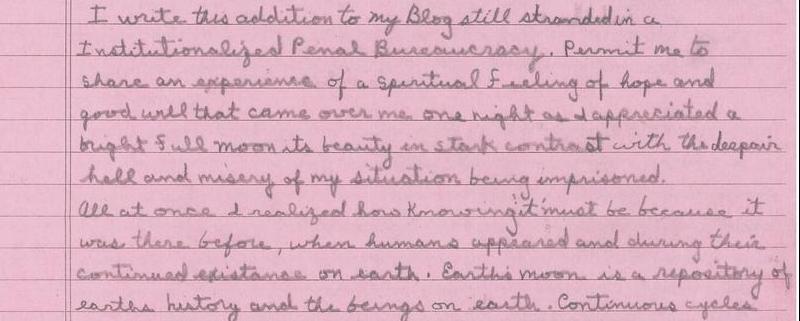 I write this addition to my Blog still stranded in a
Institutionalized Penal Bureaucracy. Permit me to
share an experience of a spiritual feeling of hope and
good will that came over me one night as I appreciated a
bright full moon its beauty in stark contrast with the despair
hell and misery of my situation being imprisoned.
All at once I realized how knowing "it" must be because it
was there before, when humans appeared and during their
continued existance on earth. Earths moon is a repository of
earths history and the beings on earth. Continuous cycles